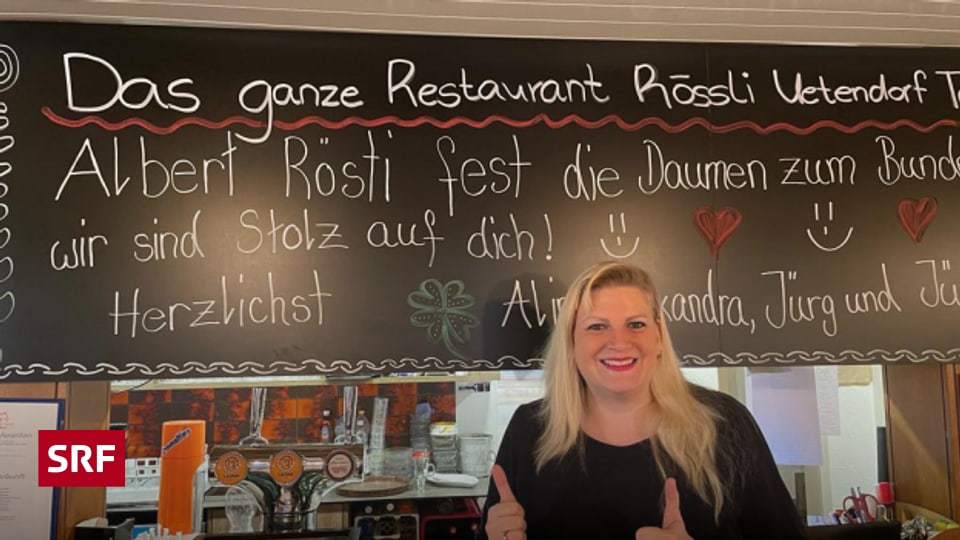 Das ganze Restaurant Rössli Uetendorf
Albert Rösti fest die Daumen zum
wir sind Stolz auf dich!
Herzlichst Jürg und
SRF